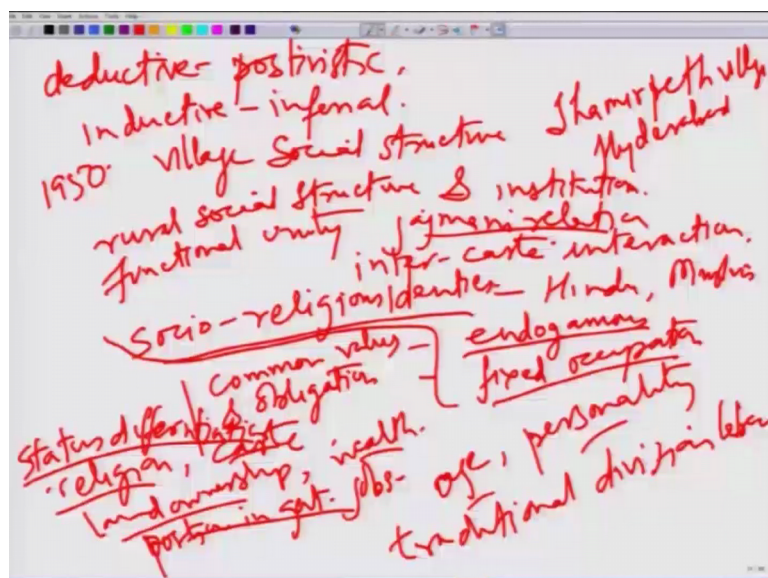 deductive - positivistic.
inductive - infernal.
1950. village Social structure
Shamirpeth village
Hyderabad
rural social structure & institution.
functional unity jajmani relation
inter-caste interaction.
socio-religious identities - Hindu, Muslims
common values
& obligation
endogamous
fixed occupation
status differentiation
religion, caste
land ownership, wealth.
position in govt. jobs-
age, personality
traditional division labour